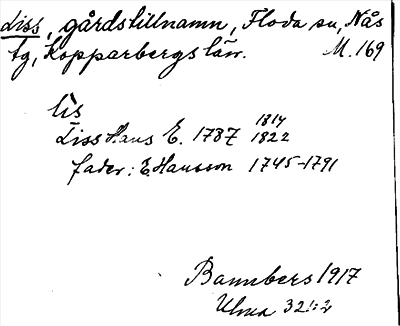 Liss, gårdstillnamn, Floda sn, Nås
tg, Kopparbergs län. M. 169
lìs
1814
Liss Hans E. 1787 1822
fader: E. Hansson 1745-1791
Bannbers 1917
Ulma 321:2